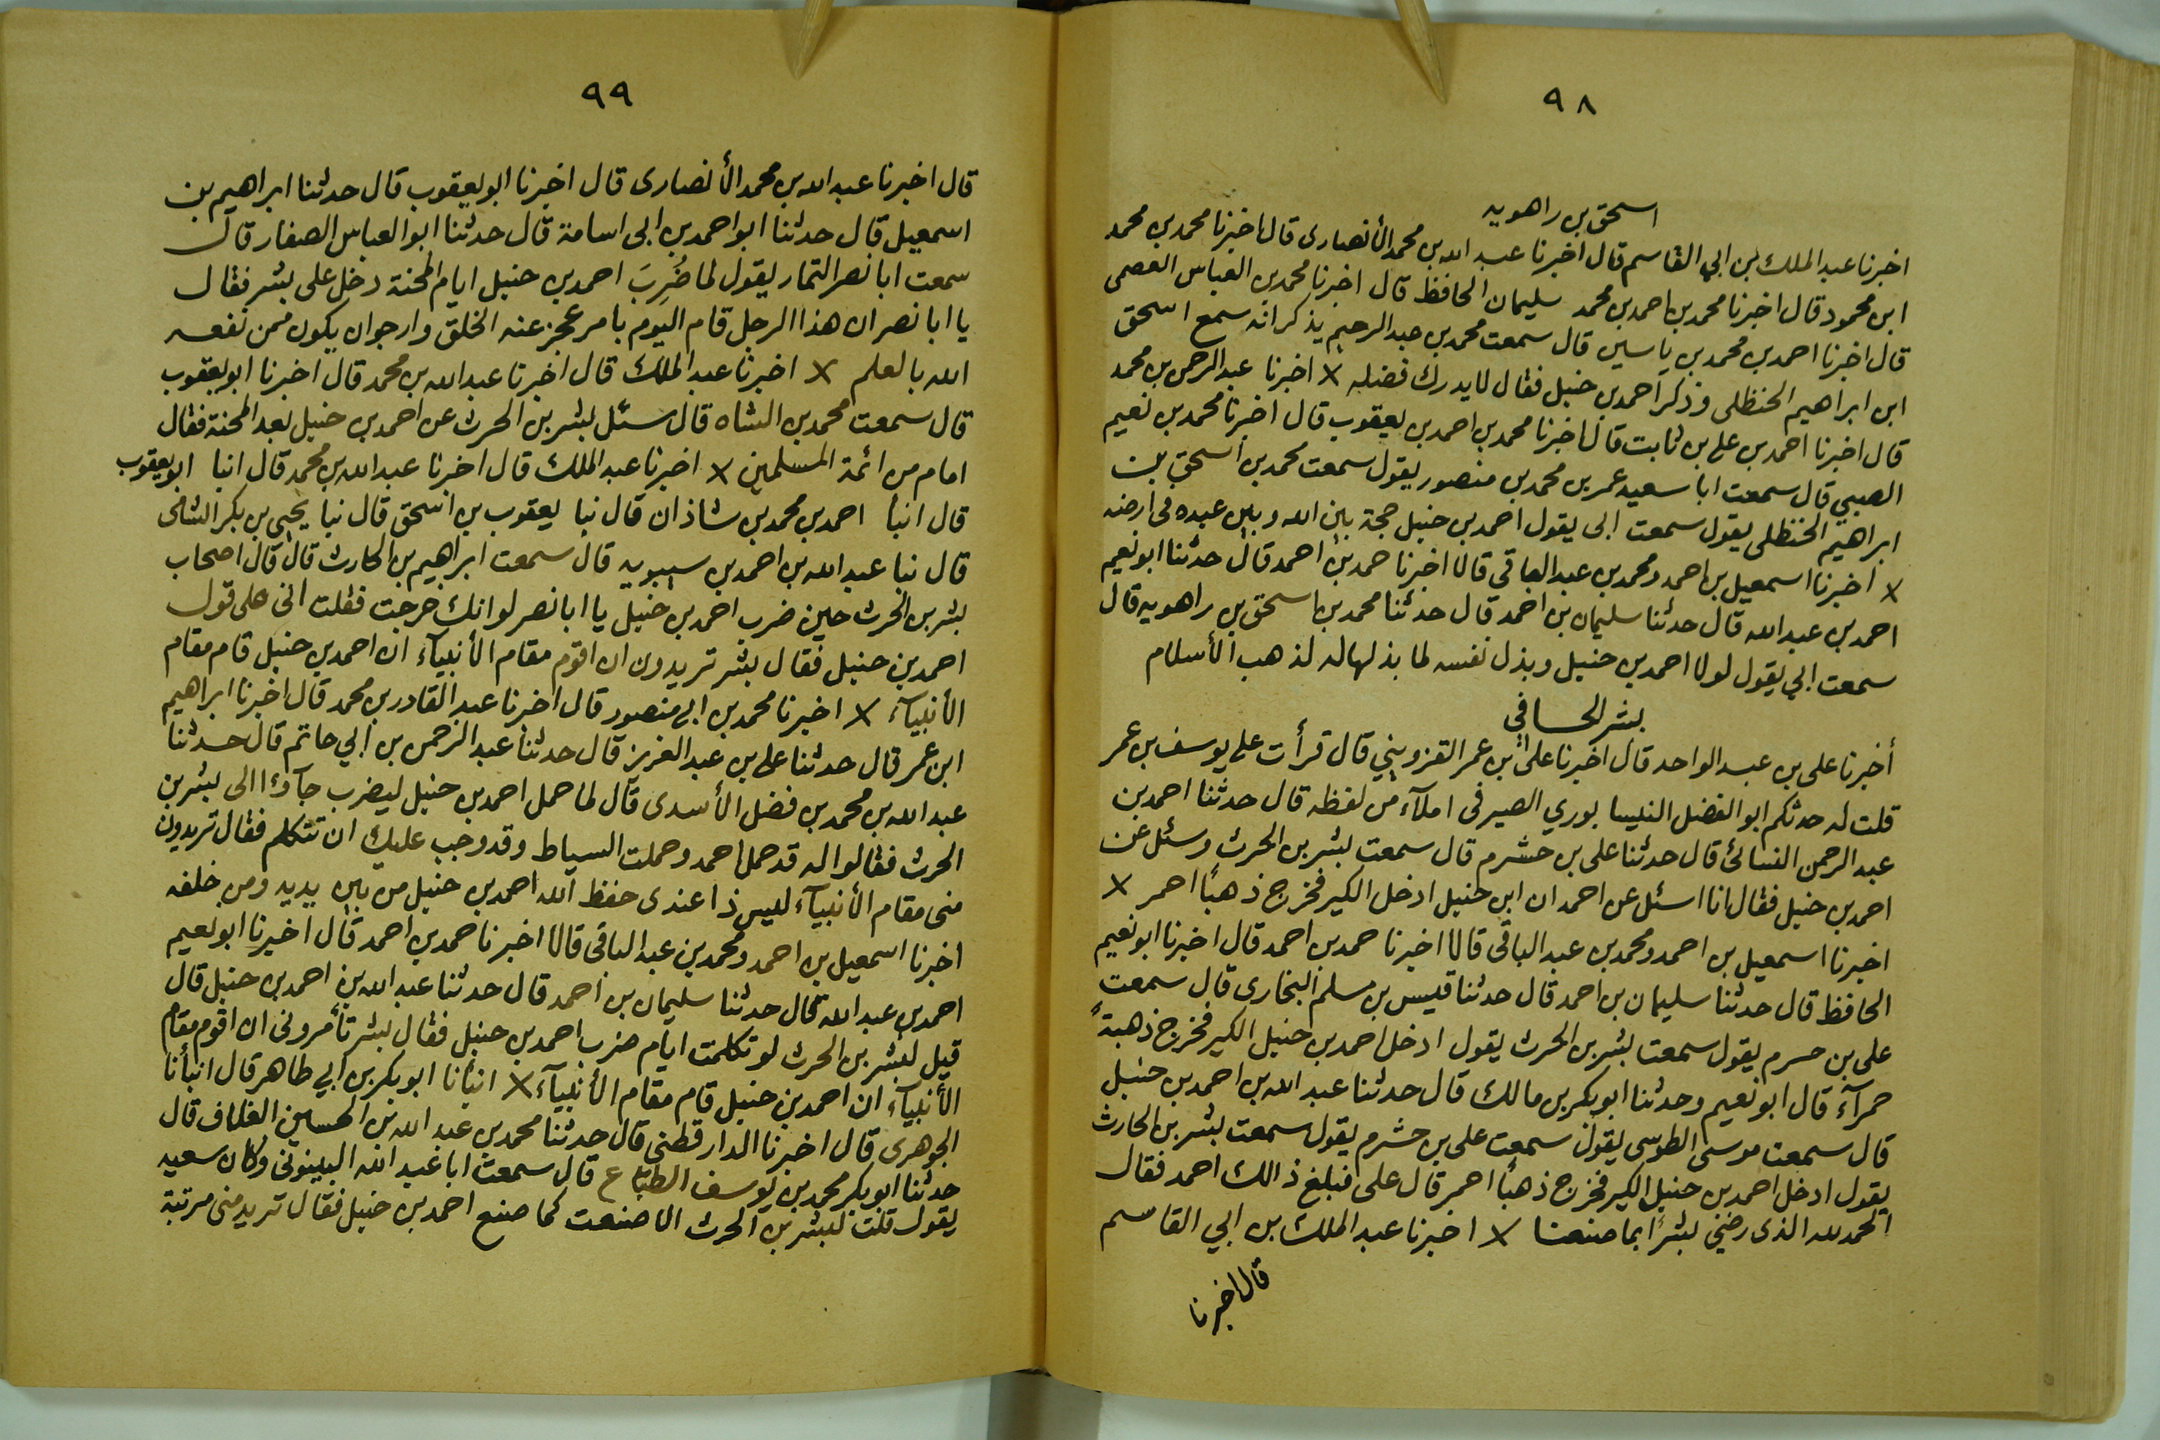 ٩٨
اسحق بن راهويه
اخبرنا عبد الملك بن ابي القاسم قال اخبرنا عبد الله بن محمد الأنصارى قال اخبرنا محمد بن محمد
ابن محمود قال اخبرنا محمد بن احمد بن محمد سليمان الحافظ قال اخبرنا محمد بن العباس العصمى
قال اخبرنا احمد بن محمد بن ياسين قال سمعت محمد بن عبد الرحيم يذكر انه سمع اسحق
ابن ابراهيم الحنظلى وذكر احمد بن حنبل فقال لا يدرك فضله × اخبرنا عبد الرحمن بن محمد
قال اخبرنا احمد بن على بن ثابت قال اخبرنا محمد بن احمد بن يعقوب قال اخبرنا محمد بن نعيم
الضبي قال سمعت ابا سعيد عمر بن محمد بن منصور يقول سمعت محمد بن اسحق بن
ابراهيم الحنظلى يقول سمعت ابى يقول احمد بن حنبل حجة بين الله وبين عبده فى ارضه
× اخبرنا اسمعيل بن احمد ومحمد بن عبد الباقي قالا اخبرنا حمد بن احمد قال حدثنا ابو نعيم
احمد بن عبد الله قال حدثنا سليمان بن احمد قال حدثنا محمد بن اسحق بن راهويه قال
سمعت ابي يقول لولا احمد بن حنبل وبذل نفسه لما بذلها له لذهب الأسلام
بشر الحافي
أخبرنا على بن عبد الواحد قال اخبرنا على بن عمر القزويني قال قرأت على يوسف بن عمر
قلت له حدثكم ابو الفضل النيسا بوري الصيرفى املآء من لفظه قال حدثنا احمد بن
عبد الرحمن النسائى قال حدثنا على بن حشرم قال سمعت بشر بن الحرث وسئل عن
احمد بن حنبل فقال انا اسئل عن احمد ان ابن حنبل ادخل الكير فخرج ذهبًا احمر ×
اخبرنا اسمعيل بن احمد ومحمد بن عبد الباقى قالا اخبرنا حمد بن احمد قال اخبرنا ابو نعيم
الحافظ قال حدثنا سليمان بن احمد قال حدثنا قيس بن مسلم البخارى قال سمعت
على بن حسرم يقول سمعت بشر بن الحرث يقول ادخل احمد بن حنبل الكير فخرج ذهبةً
حمرآء قال ابو نعيم وحدثنا ابو بكر بن مالك قال حدثنا عبد الله بن احمد بن حنبل
قال سمعت موسى الطوسى يقول سمعت على بن خشرم يقول سمعت بشر بن الحارث
يقول ادخل احمد بن حنبل الكير فخرج ذهبًا احمر قال على فبلغ ذالك احمد فقال
الحمد لله الذى رضي بشرًا بما صنعنا × اخبرنا عبد الملك بن ابي القاسم
قال اخبرنا
٩٩
قال اخبرنا عبد الله بن محمد الأنصارى قال اخبرنا ابو يعقوب قال حدثنا ابراهيم بن
اسمعيل قال حدثنا ابو احمد بن ابى اسامة قال حدثنا ابو العباس الصفار قال
سمعت ابا نصر التمار يقول لما ضُرِبَ احمد بن حنبل ايام المحنة دخل على بشر فقال
يا ابا نصر ان هذا الرجل قام اليوم بامر عجز عنه الخلق وارجو ان يكون ممن نفعه
الله بالعلم × اخبرنا عبد الملك قال اخبرنا عبد الله بن محمد قال اخبرنا ابو يعقوب
قال سمعت محمد بن الشاه قال سئل بشر بن الحرث عن احمد بن حنبل بعد المحنة فقال
امام من ائمة المسلمين × اخبرنا عبد الملك قال اخرنا عبد الله بن محمد قال انبا ابو يعقوب
قال انبا احمد بن محمد بن شاذان قال نبا يعقوب بن اسحق قال نبا يحيى بن بكر الشامى
قال نبا عبد الله بن احمد بن سيبويه قال سمعت ابراهيم بن الحارث قال قال اصحاب
بشر بن الحرث حين ضرب احمد بن حنبل يا ابا نصر لو انك خرجت فقلت انى على قول
احمد بن حنبل فقال بشر تريدون ان اقوم مقام الأنبيآء ان احمد بن حنبل قام مقام
الأنبيآء × اخبرنا محمد بن ابى منصور قال اخبرنا عبد القادر بن محمد قال اخبرنا ابراهيم
ابن عمر قال حدثنا على بن عبد العزيز قال حدثنا عبد الرحمن بن ابي حاتم قال حدثنا
عبد الله بن محمد بن فضل الأسدى قال لما حمل احمد بن حنبل ليضرب جآؤا الى بشر بن
الحرث فقالوا له قد حمل احمد وحملت السياط وقد وجب عليك ان تتكلم فقال تريدون
منى مقام الأنبيآء ليس ذا عندى حفظ الله احمد بن حنبل من بين يديه ومن خلفه
اخبرنا اسمعيل بن احمد ومحمد بن عبد الباقى قالا اخبرنا حمد بن احمد قال اخبرنا ابو نعيم
احمد بن عبد الله قال حدثنا سليمان بن احمد قال حدثنا عبد الله بن احمد بن حنبل قال
قيل لبشر بن الحرث لو تكلمت ايام ضرب احمد بن حنبل فقال بشر تأمرونى ان اقوم مقام
الأنبيآء ان احمد بن حنبل قام مقام الأنبيآء × انبأنا ابو بكر بن ابي طاهر قال انبأنا
الجوهرى قال اخبرنا الدارقطنى قال حدثنا محمد بن عبد الله بن الحسين العلاف قال
حدثنا ابو بكر محمد بن يوسف الطباع قال سمعت ابا عبد الله البينونى وكان سعيد
يقول قلت لبشر بن الحرث الا صنعت كما صنع احمد بن حنبل فقال تريد منى مرتبة